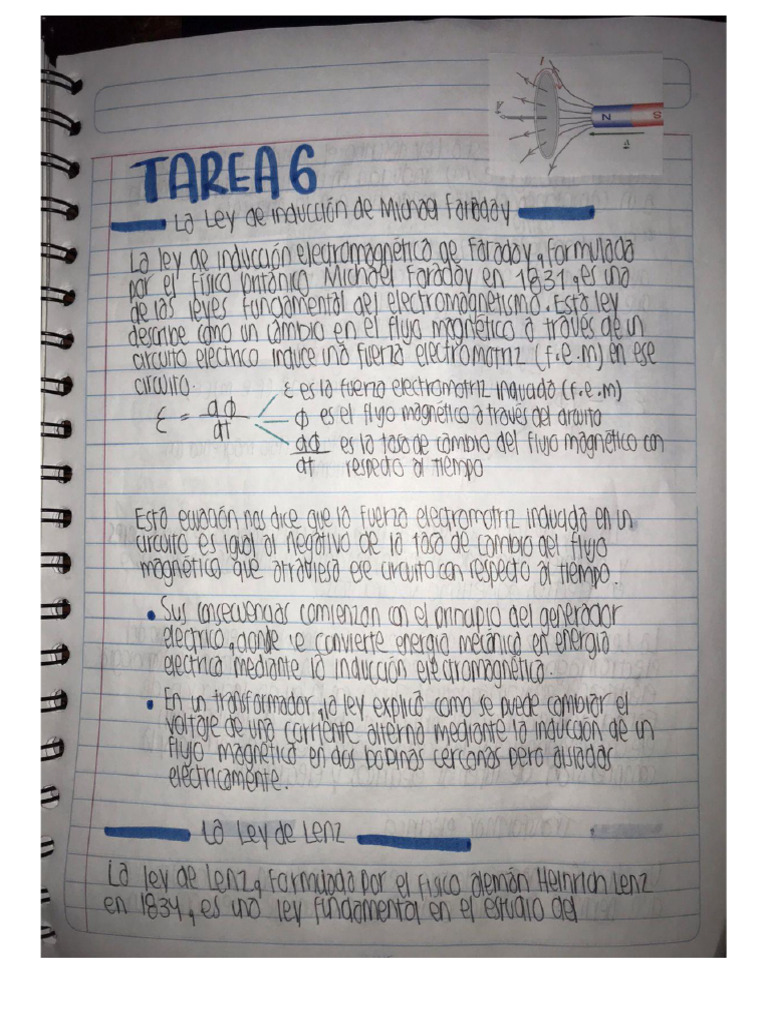 N S
TAREA 6
La Ley de inducción de Michael Faraday
La ley de inducción electromagnética de Faraday, formulada
por el físico británico Michael Faraday en 1831, es una
de las leyes fundamental del electromagnetismo. Esta ley
describe cómo un cambio en el flujo magnético a través de un
circuito electrico induce una fuerza electromotriz (f.e.m) en ese
circuito.
ε = dϕ/dt
ε es la fuerza electromotriz inducida (f.e.m)
ϕ es el flujo magnético a través del circuito
dϕ/dt es la tasa de cambio del flujo magnético con
respecto al tiempo
Esta ecuación nos dice que la fuerza electromotriz inducida en un
circuito es igual al negativo de la tasa de cambio del flujo
magnético que atraviesa ese circuito con respecto al tiempo.
• Sus consecuencias comienzan con el principio del generador
electrico, donde se convierte energía mecánica en energía
electrica mediante la inducción electromagnética.
• En un transformador, la ley explica como se puede cambiar el
voltaje de una corriente alterna mediante la inducción de un
flujo magnético en dos bobinas cercanas pero aisladas
eléctricamente.
La Ley de Lenz
La ley de Lenz, formulada por el físico alemán Heinrich Lenz
en 1834, es una ley fundamental en el estudio del